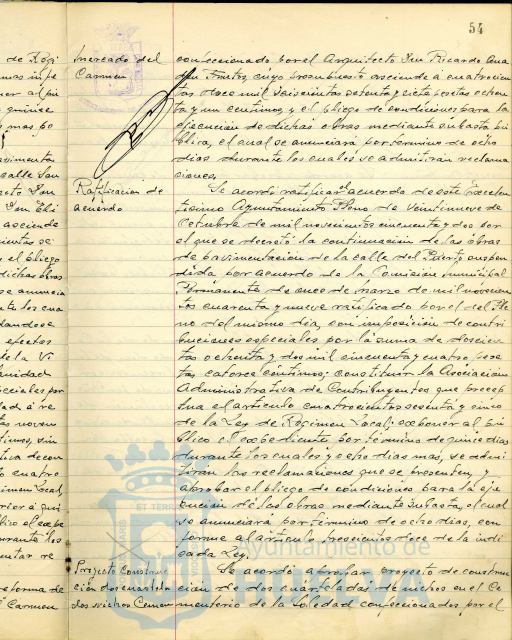 54
Mercado del
Carmen
confeccionado por el Arquitecto Don Ricardo Ana
dón Frutos, cuyo presupuesto asciende a cuatrocien
tas doce mil seiscientas setenta y siete pesetas ochen
ta y un centimos, y el pliego de condiciones para la
ejecución de dichas obras mediante subasta pú
blica, el cual se anunciará por termino de ocho
dias durante los cuales se admitirán reclama
ciones.
Ratificación de
acuerdo
Se acordó ratificar el acuerdo de este Excelen
tisimo Ayuntamiento Pleno de veintinueve de
Octubre de mil novecientos cincuenta y dos por
el que se decretó la continuación de las obras
de pavimentación de la calle del Puerto suspen
dida por acuerdo de la Comisión Municipal
Permanente de once de marzo de mil novecien
tos cuarenta y nueve ratificado por el del Ple
no del mismo dia, con imposición de contri
buciones especiales por la suma de doscien
tas ochenta y dos mil cincuenta y cuatro pese
tas catorce centimos; constituir la Asociación
Administrativa de Contribuyentes que precep
tua el articulo cuatrocientos sesenta y cinco
de la Ley de Regimen Local; exponer al pú
blico el expediente por termino de quince dias
durante los cuales y ocho dias mas, se admi
tirán las reclamaciones que se presenten, y
aprobar el pliego de condiciones para la eje
cución de las obras mediante subasta, el cual
se anunciará por termino de ocho dias, con
forme al articulo trescientos doce de la indi
cada Ley.
Proyecto construc
ción dos cuartela
dos nichos Cemen
Se acordó aprobar proyecto de construc
ción de dos cuarteladas de nichos en el Ce
menterio de la Soledad confeccionados por el
ET TERRÆ
Ayuntamiento de
HUELVA